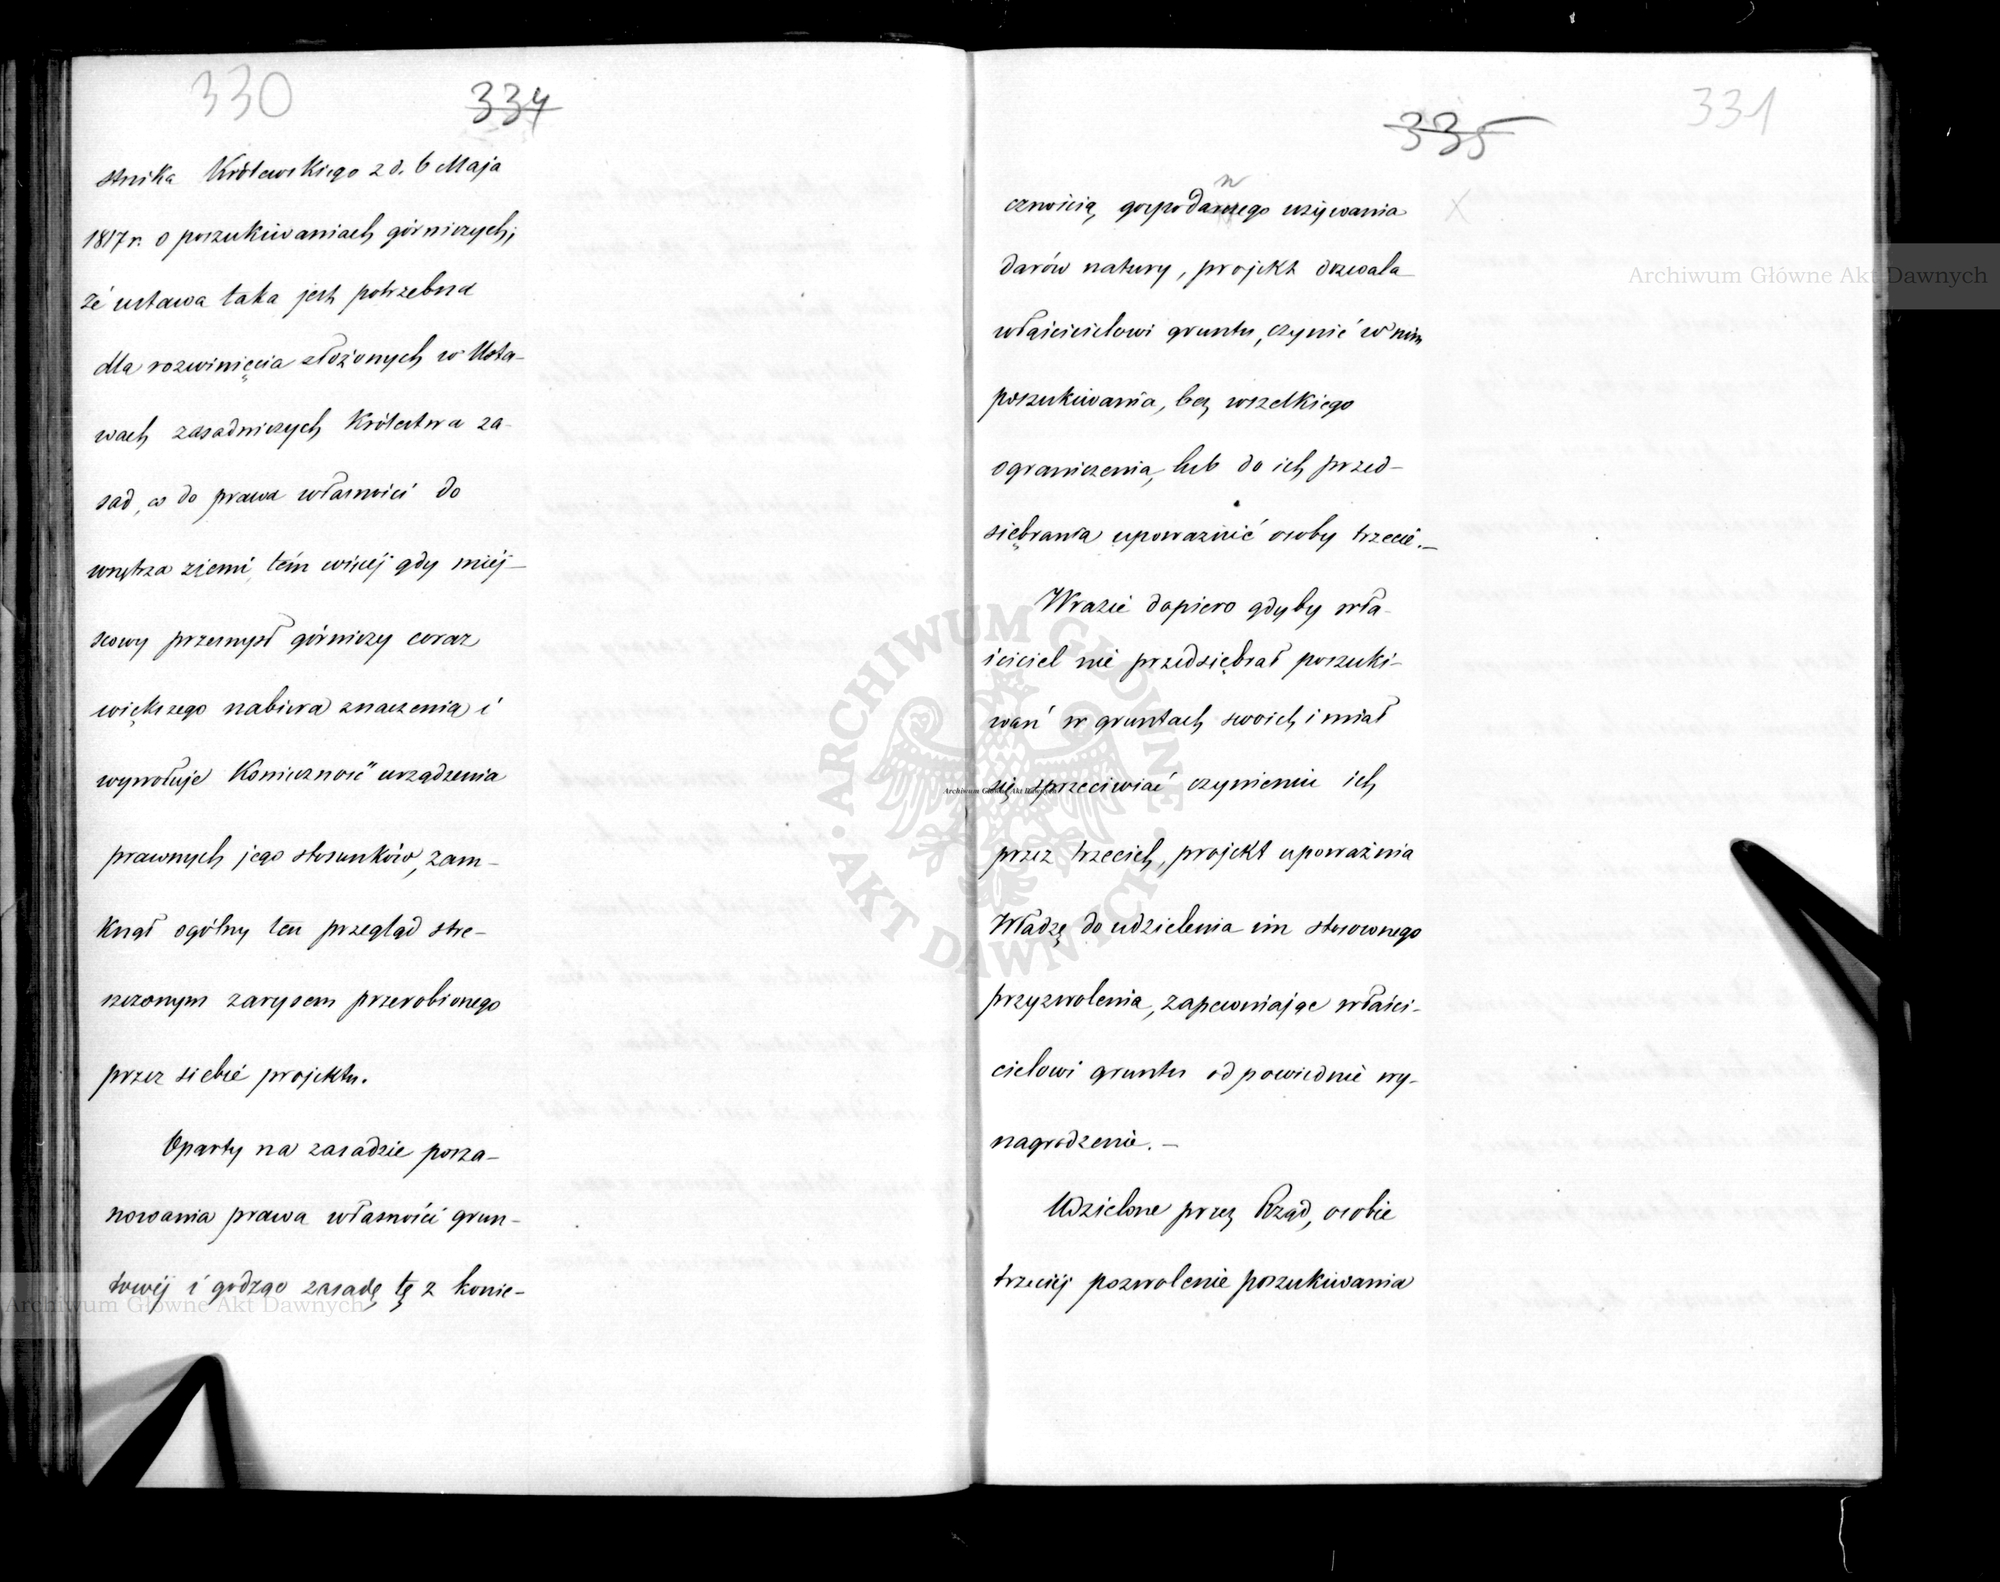 330
334
stnika Królewskiego z d. 6 Maja
1817 r. o poszukiwaniach górniczych;
że ustawa taka jest potrzebna
dla rozwinięcia złożonych w Usta-
wach zasadniczych Królestwa za-
sad, co do prawa własności do
wnętrza ziemi, tém więcéj gdy miéj-
scowy przemysł górniczy coraz
większego nabiera znaczenia i
wywołuje Konieczność urządzenia
prawnych jego stosunków, zam-
Knął ogólny ten przegląd stre-
szczonym zarysem przerobionego
przez siebie projektu.
Oparty na zasadzie posza-
nowania prawa własności grun-
towéj i godząc zasadę tę z konie-
331
335
cznością gospodarnego używania
darów natury, projekt dozwala
właścicielowi gruntu, czynić w nim
poszukiwania, bez wszelkiego
ograniczenia, lub do ich przed-
siębrania upoważnić osoby trzecie.—
Wrazie dopiero gdyby wła-
ściciel nie przedsiębrał poszuki-
wań w gruntach swoich i miał
się sprzeciwiać czynieniu ich
przez trzecich, projekt upoważnia
Władzę do udzielenia im stosownego
przyzwolenia, zapewniając właści-
cielowi gruntu odpowiednie wy-
nagrodzenie.—
Udzielone przez Rząd, osobie
trzeciéj pozwolenie poszukiwania
Archiwum Główne Akt Dawnych
Archiwum Główne Akt Dawnych
Archiwum Główne Akt Dawnych
ARCHIWUM GŁÓWNE AKT DAWNYCH